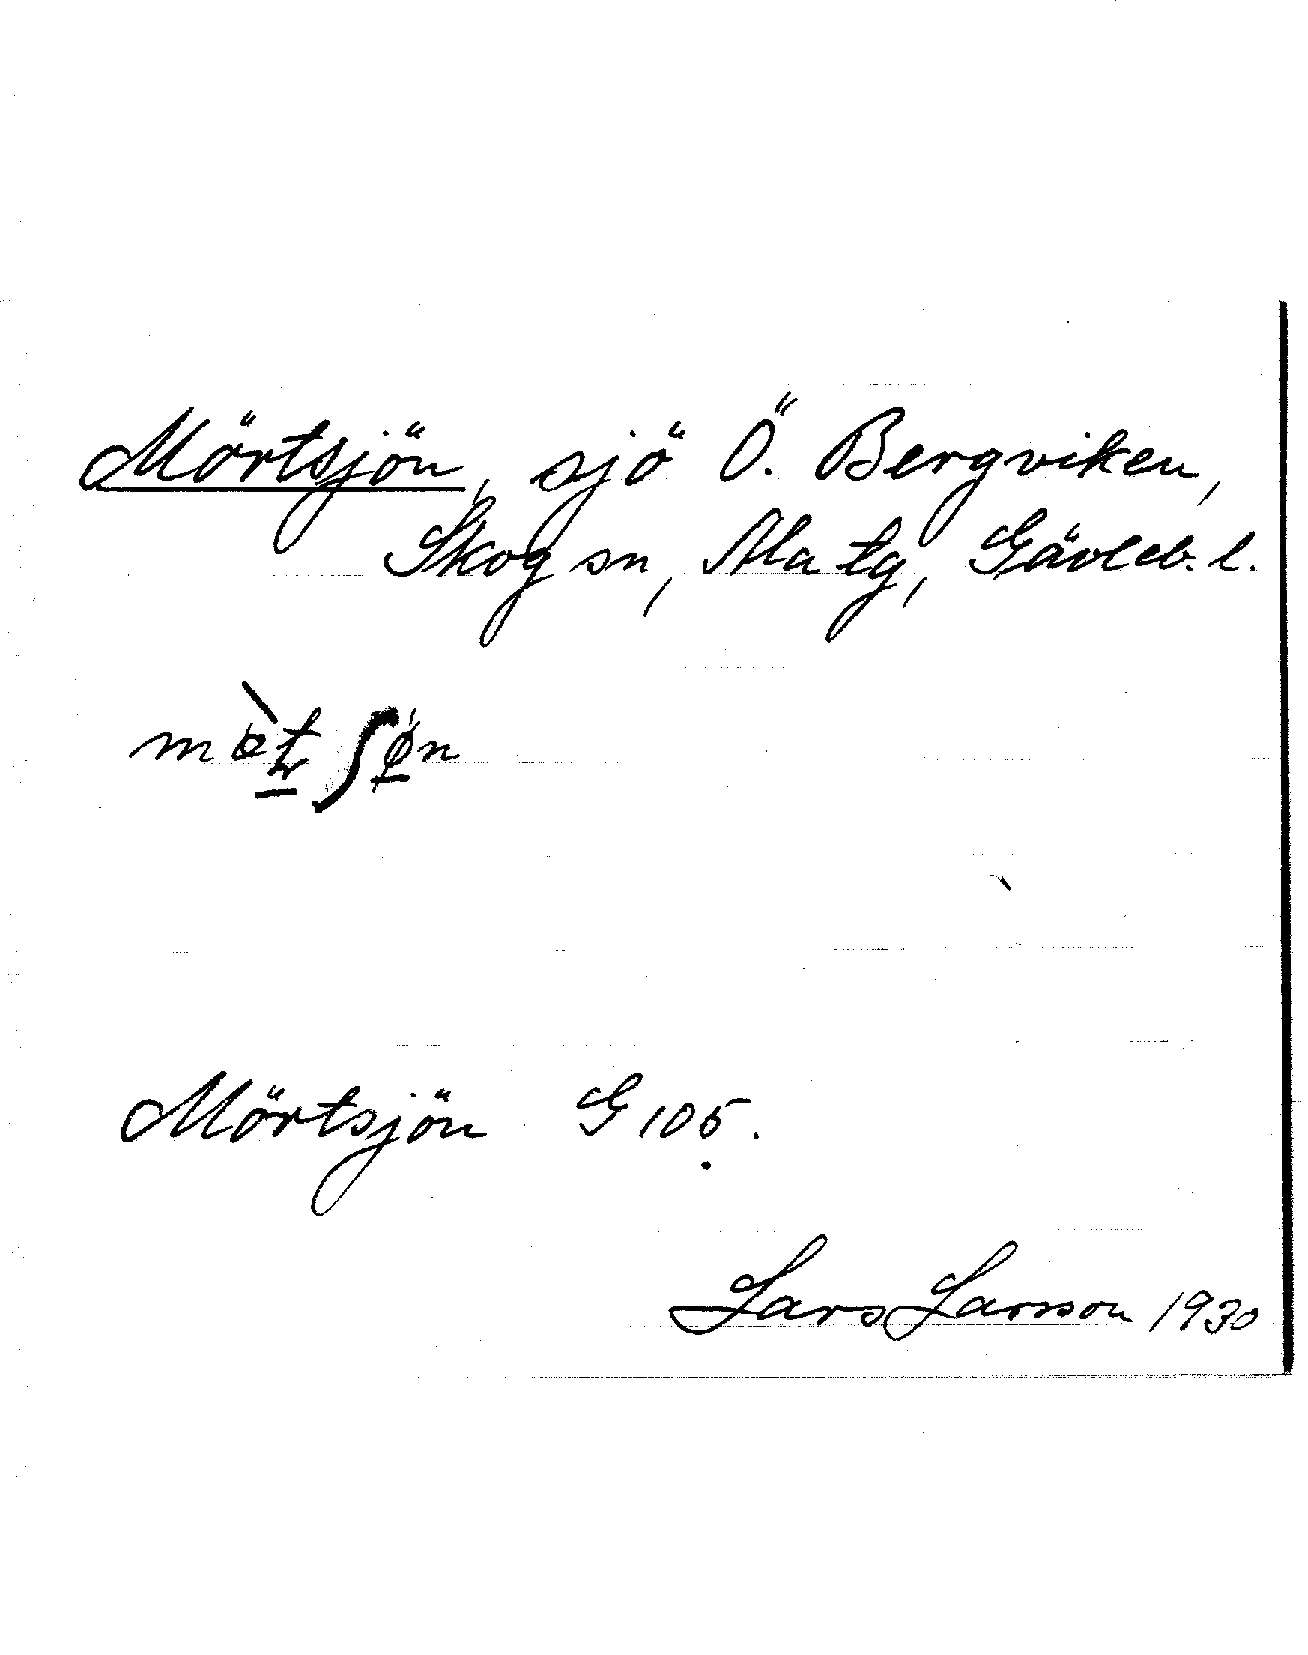 Mörtsjön, sjö Ö. Bergviken,
Skog sn, Ala tg, Gävleb. l.
Mörtsjön G 105.
Lars Larsson 1930